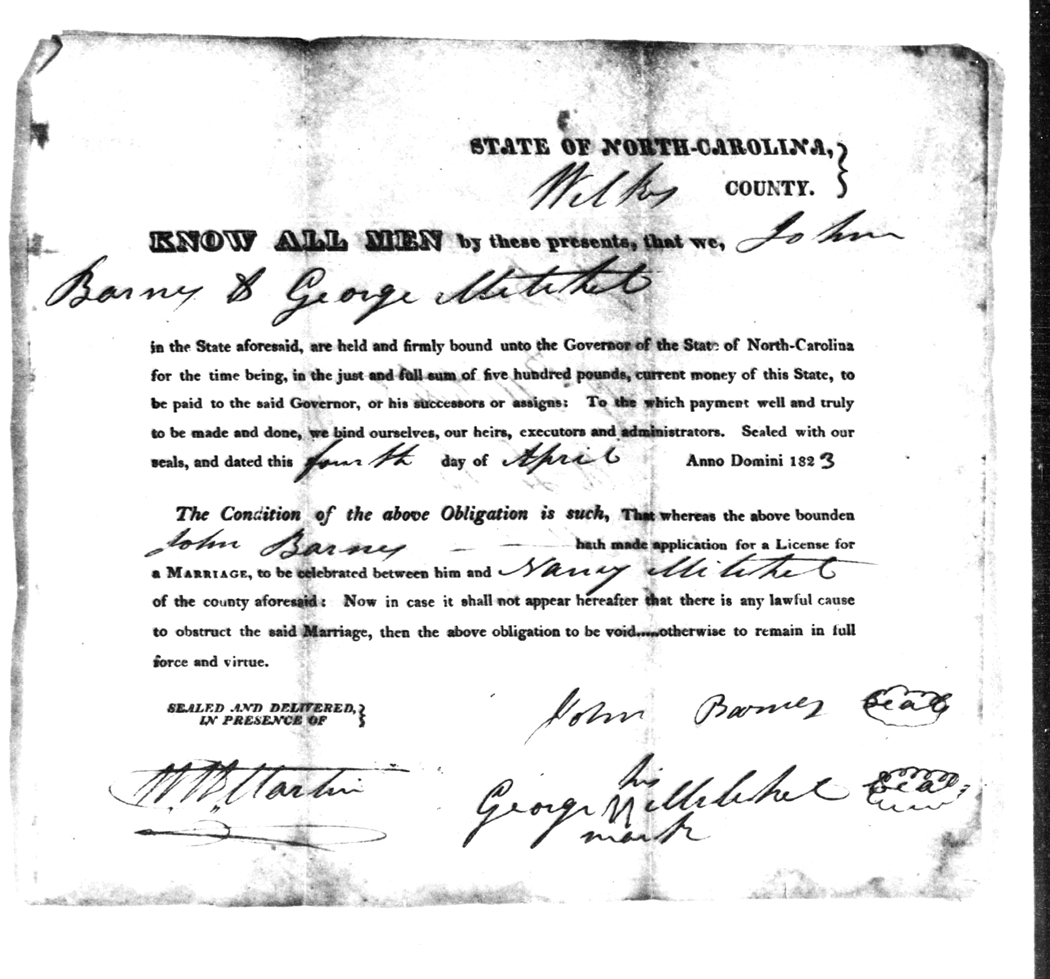 STATE OF NORTH-CAROLINA,
Wilkes COUNTY.
KNOW ALL MEN by these presents, that we, John
Barney & George Mitchel
in the State aforesaid, are held and firmly bound unto the Governor of the State of North-Carolina
for the time being, in the just and full sum of five hundred pounds, current money of this State, to
be paid to the said Governor, or his successors or assigns: To the which payment well and truly
to be made and done, we bind ourselves, our heirs, executors and administrators. Sealed with our
seals, and dated this fourth day of April Anno Domini 1823
The Condition of the above Obligation is such, That whereas the above bounden
John Barney hath made application for a License for
a MARRIAGE, to be celebrated between him and Nancy Mitchel
of the county aforesaid: Now in case it shall not appear hereafter that there is any lawful cause
to obstruct the said Marriage, then the above obligation to be void.....otherwise to remain in full
force and virtue.
SEALED AND DELIVERED,
IN PRESENCE OF
John Barney Seal
his
George Mitchel Seal
mark
Martin